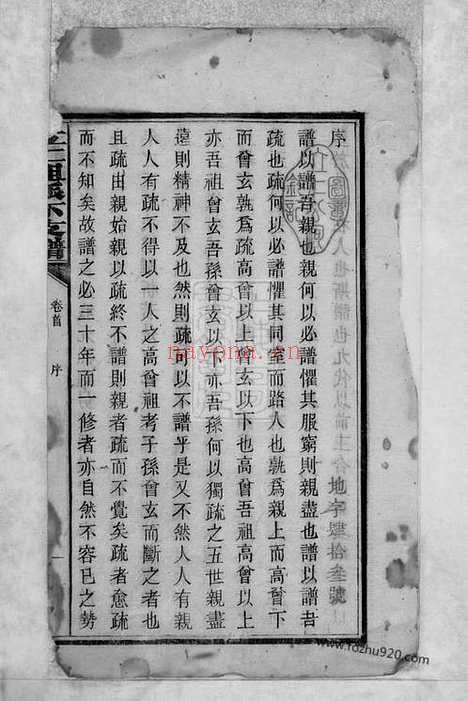 序
譜以譜吾親也親何以必譜懼其服窮則親盡也譜以譜吾
疏也疏何以必譜懼其同室而路人也孰為親上而高曾下
而曾玄孰為疏高曾以上曾玄以下也高曾吾祖高曾以上
亦吾祖曾玄吾孫曾玄以下亦吾孫何以獨疏之五世親盡
遠則精神不及也然則疏何以不譜乎是又不然人人有親
人人有疏不得以一人之高曾祖考子孫曾玄而斷之者也
且疏由親始親以疏終不譜則親者疏而不覺矣疏者愈疏
而不知矣故譜之必三十年而一修者亦自然不容已之勢
卷首
序
一
nayona.cn
www.fozhu920.com